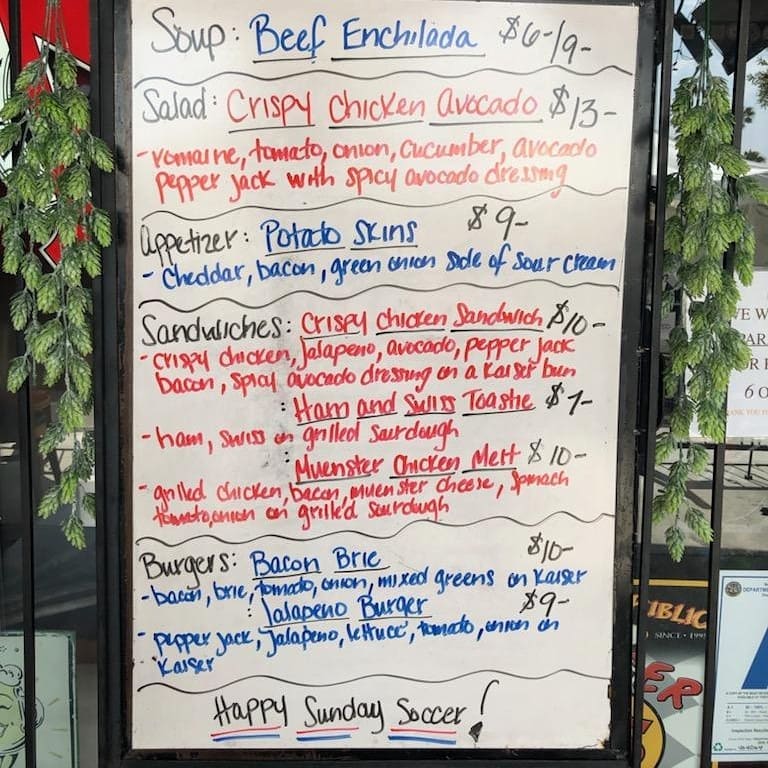 Soup: Beef Enchilada $6-/9-
Salad: Crispy Chicken Avocado $13-
- romaine, tomato, onion, cucumber, avocado
pepper jack with spicy avocado dressing
Appetizer: Potato Skins $9-
- Cheddar, bacon, green onion side of sour cream
Sandwiches: Crispy Chicken Sandwich $10-
- crispy chicken, jalapeno, avocado, pepper jack
bacon, spicy avocado dressing on a Kaiser bun
: Ham and Swiss Toastie $7-
- ham, swiss on grilled sourdough
: Muenster Chicken Melt $10-
- grilled chicken, bacon, muenster cheese, spinach
tomato, onion on grilled sourdough
Burgers: Bacon Brie $10-
- bacon, brie, tomato, onion, mixed greens on Kaiser
: Jalapeno Burger $9-
- pepper jack, jalapeno, lettuce, tomato, onion on
Kaiser
Happy Sunday Soccer!
VE W
PAR
R
6 O
IBLIC
SINCE • 199
ER
DEPARTM